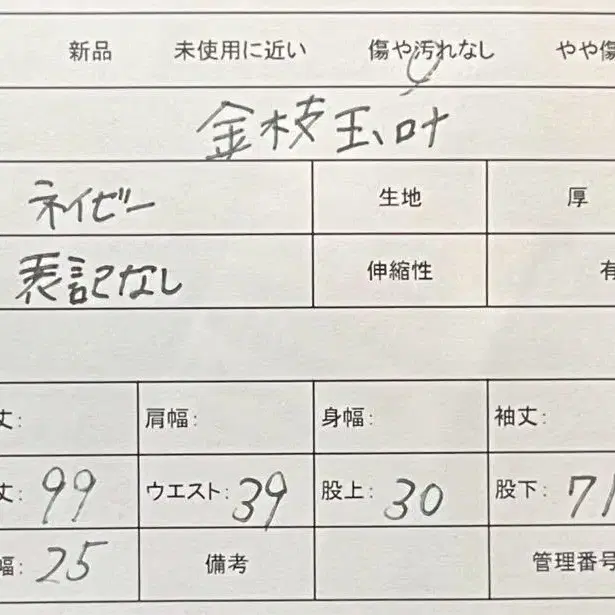 新品 未使用に近い 傷や汚れなし やや傷
金枝玉叶
ネイビー 生地 厚
表記なし 伸縮性 有
丈: 肩幅: 身幅: 袖丈:
丈: 99 ウエスト: 39 股上: 30 股下: 71
幅: 25 備考 管理番号